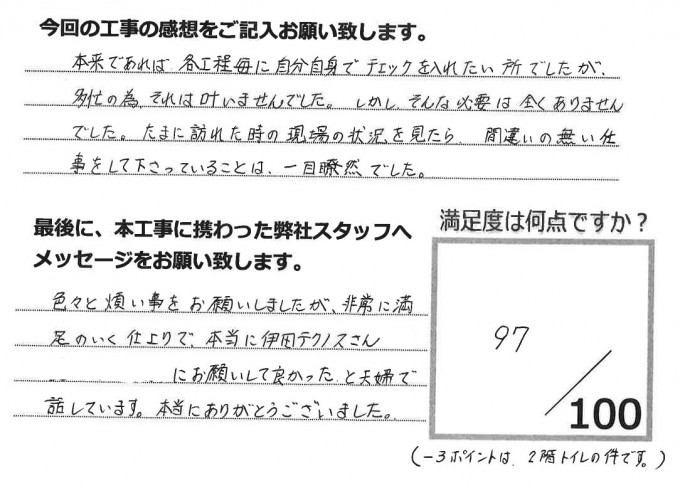 今回の工事の感想をご記入お願い致します。
本来であれば、各工程毎に自分自身でチェックを入れたい所でしたが、
多忙の為、それは叶いませんでした。しかし、そんな必要は全くありません
でした。たまに訪れた時の現場の状況を見たら、間違いの無い仕
事をして下さっていることは、一目瞭然でした。
最後に、本工事に携わった弊社スタッフへ
メッセージをお願い致します。
色々と煩い事をお願いしましたが、非常に満
足のいく仕上りで、本当に伊田テクノスさん
にお願いして良かった、と夫婦で
話しています。本当にありがとうございました。
満足度は何点ですか？
97
100
(-3ポイントは、2階トイレの件です。)